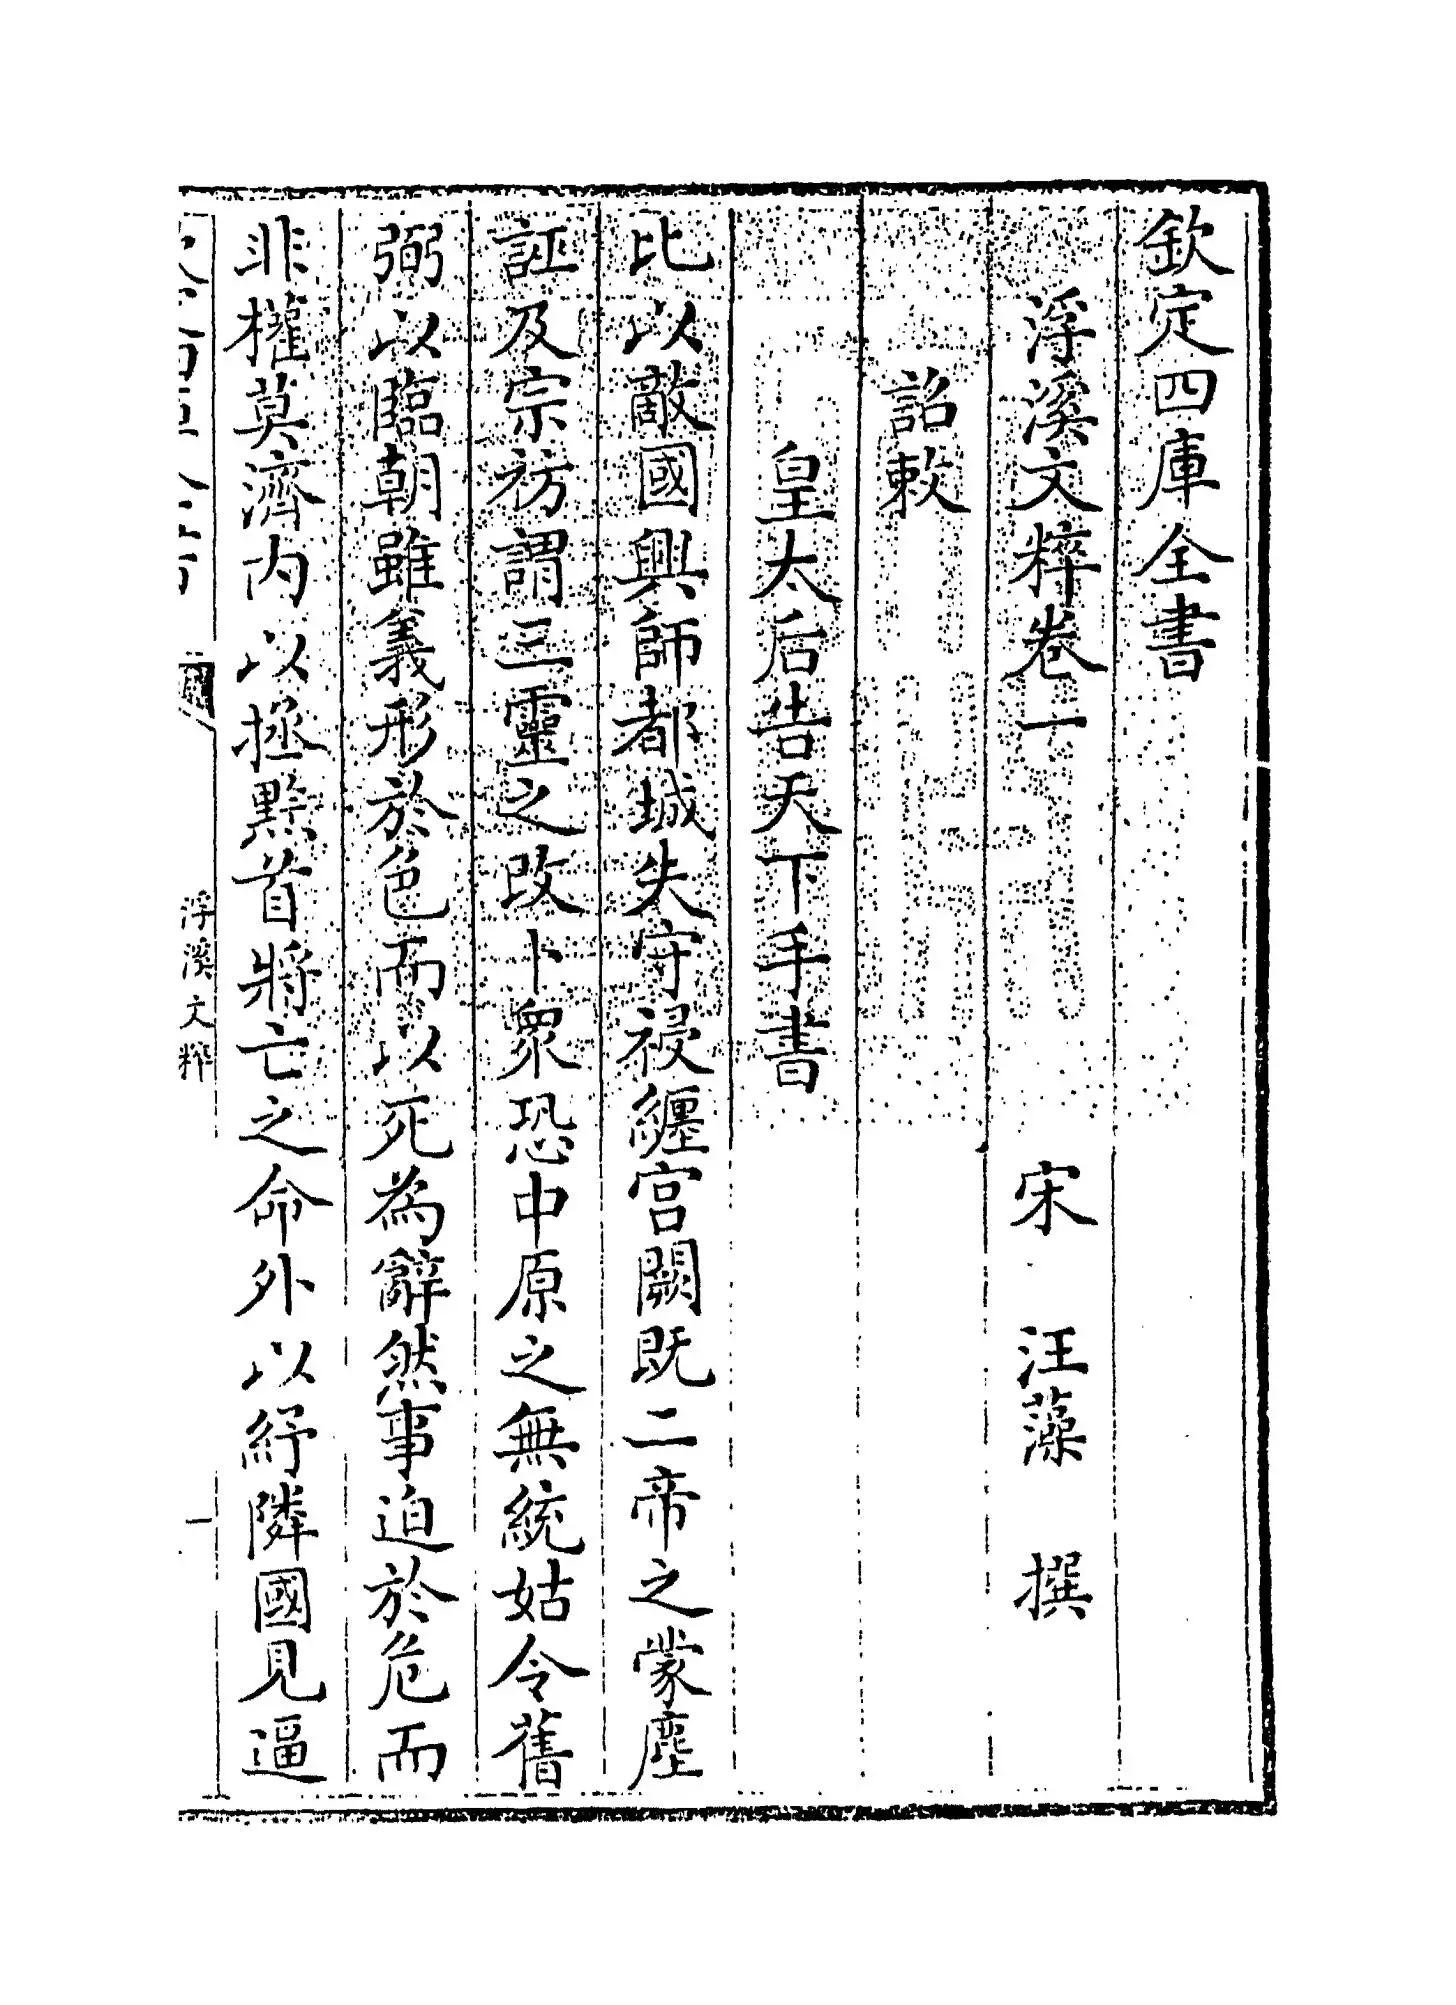 欽定四庫全書
浮溪文粹卷一
宋 汪藻 撰
詔敕
皇太后告天下手書
比以敵國興師都城失守祲纏宮闕既二帝之蒙塵
誣及宗祊謂三靈之改卜衆恐中原之無統姑令舊
弼以臨朝雖義形於色而以死為辭然事迫於危而
非權莫濟内以拯黔首將亡之命外以紓隣國見逼
浮溪文粹
一